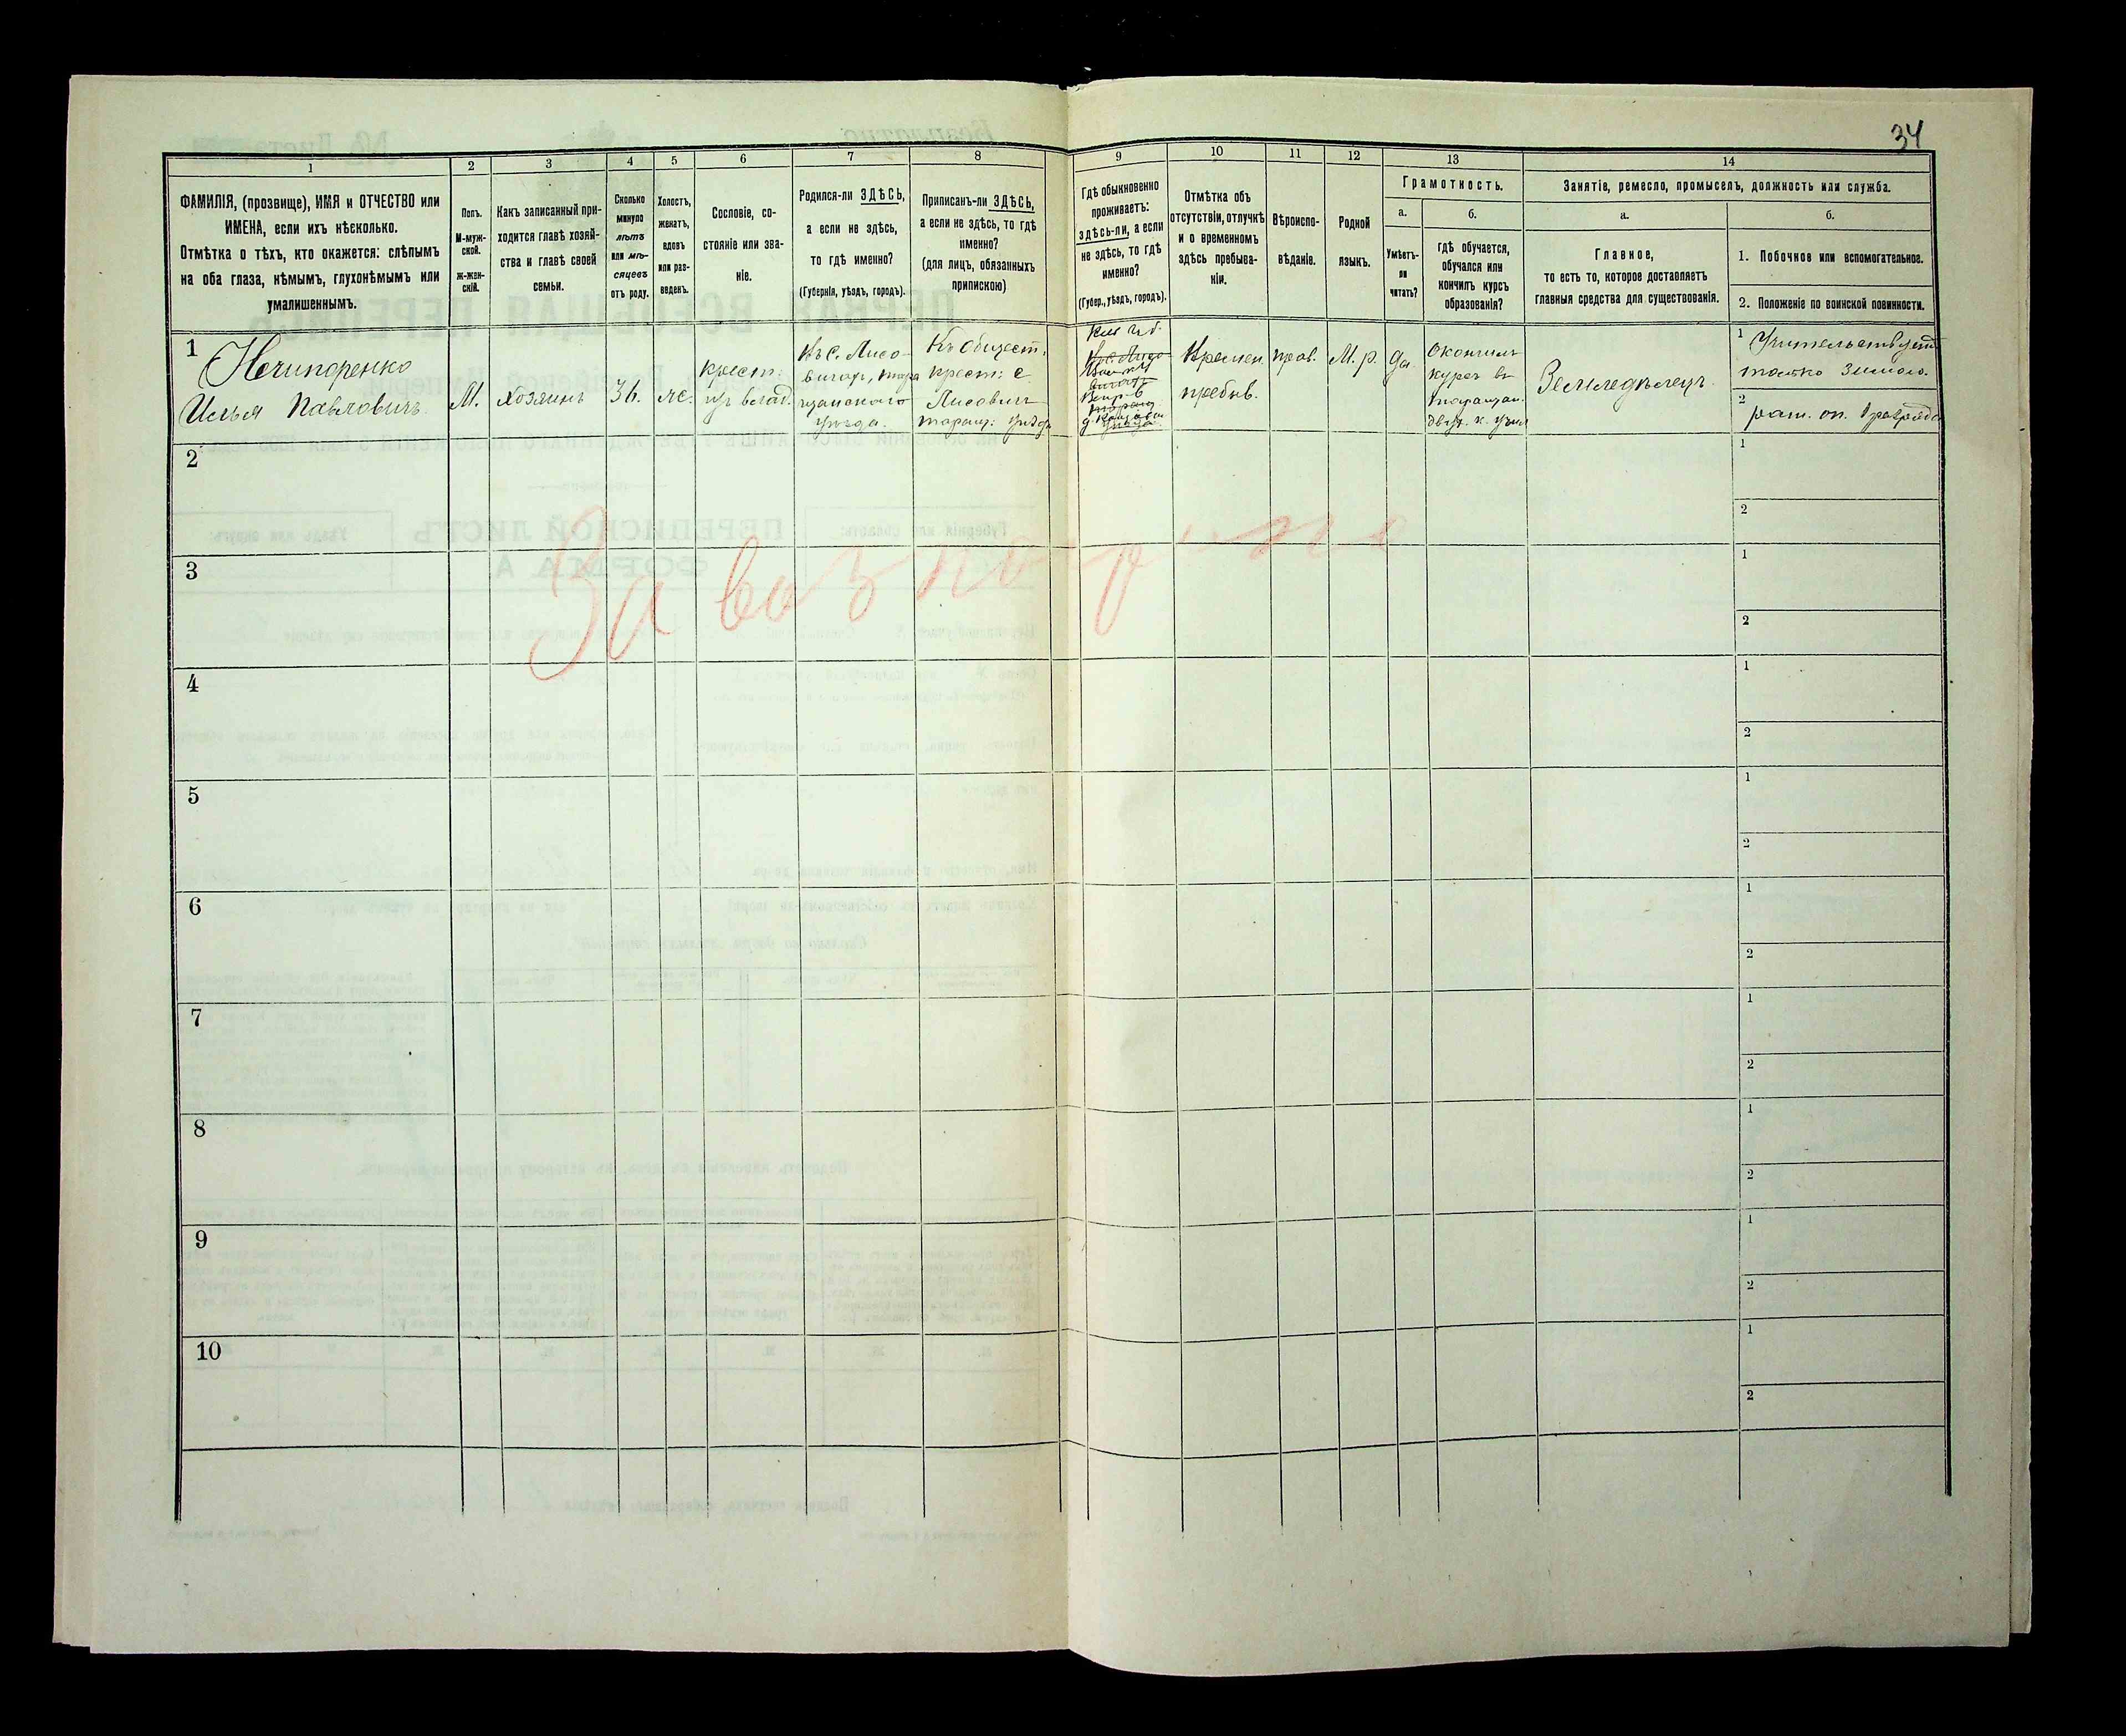 34
1
2
3
4
5
6
7
8
9
10
11
12
13
14
ФАМИЛІЯ, (прозвище), ИМЯ и ОТЧЕСТВО или
ИМЕНА, если ихъ нѣсколько.
Отмѣтка о тѣхъ, кто окажется: слѣпымъ
на оба глаза, нѣмымъ, глухонѣмымъ или
умалишеннымъ.
Полъ.
М-муж-
ской.
ж-жен-
скій.
Какъ записанный при-
ходится главѣ хозяй-
ства и главѣ своей
семьи.
Сколько
минуло
лѣтъ
или мѣ-
сяцевъ
отъ роду.
Холостъ,
женатъ,
вдовъ
или раз-
веденъ.
Сословіе, со-
стояніе или зва-
ніе.
Родился-ли ЗДѢСЬ,
а если не здѣсь,
то гдѣ именно?
(Губернія, уѣздъ, городъ).
Приписанъ-ли ЗДѢСЬ,
а если не здѣсь, то гдѣ
именно?
(для лицъ, обязанныхъ
припискою)
Гдѣ обыкновенно
проживаетъ:
здѣсь-ли, а если
не здѣсь, то гдѣ
именно?
(Губер., уѣздъ, городъ).
Отмѣтка объ
отсутствіи, отлучкѣ
и о временномъ
здѣсь пребыва-
ніи.
Вѣроиспо-
вѣданіе.
Родной
языкъ.
Грамотность.
а.
Умѣетъ-
ли
читать?
б.
гдѣ обучается,
обучался или
кончилъ курсъ
образованія?
Занятіе, ремесло, промыселъ, должность или служба.
а.
Главное,
то есть то, которое доставляетъ
главныя средства для существованія.
б.
1. Побочное или вспомогательное.
2. Положеніе по воинской повинности.
1
Нечипоренко
Илья Павловичъ
М.
Хозяинъ
36.
же.
крест.
изъ владѣ.
Въ с. Лисо-
вичах, тара
щанскаго
уѣзда.
Къ общест.
крест: с
Лисович
таращ: уѣзда
Времен.
пребыв.
прав.
М. р.
да
Окончилъ
курсъ въ
таращан.
двух. к. учил
Земледѣлецъ.
1 Учительствуетъ
только зимою.
2
рат. оп. 1 разряда
2
1
2
3
1
2
4
1
2
5
1
2
6
1
2
7
1
2
8
1
2
9
1
2
10
1
2